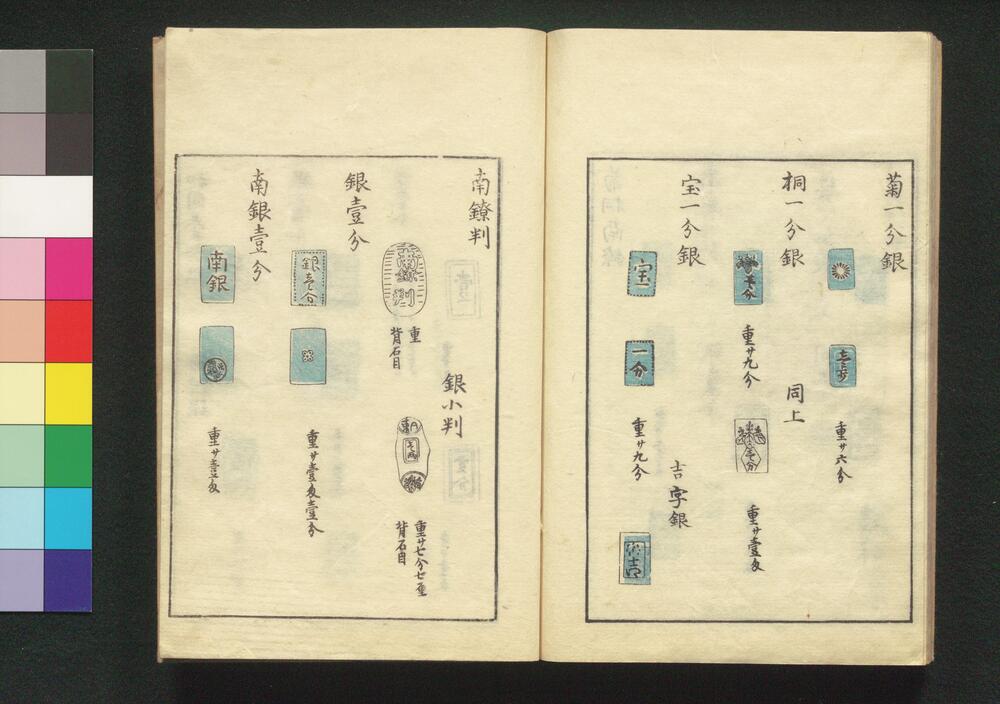 菊一分銀
重サ六分
桐一分銀
重サ九分
同上
重サ壹匁
宝一分銀
宝一
一分
重サ九分
吉字銀
南鐐判
南鐐判
重
背石目
銀小判
重サ七分七厘
背石目
銀壹分
銀壹分
重サ壹匁壹分
南銀壹分
南銀
重サ壹匁